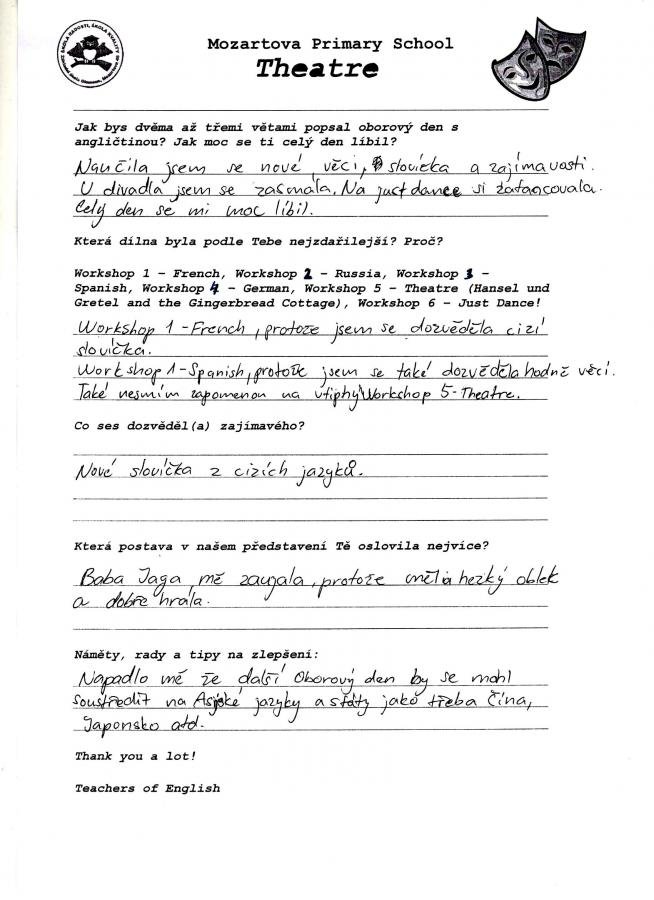 ŠKOLA RADOSTI, ŠKOLA KVALITY
Mozartova Primary School
Theatre
Jak bys dvěma až třemi větami popsal oborový den s
angličtinou? Jak moc se ti celý den líbil?
Naučila jsem se nové věci, slovíčka a zajímavosti.
U divadla jsem se zasmála. Na just dance si zatancovala.
Celý den se mi moc líbil.
Která dílna byla podle Tebe nejzdařilejší? Proč?
Workshop 1 – French, Workshop 2 – Russia, Workshop 3 –
Spanish, Workshop 4 – German, Workshop 5 – Theatre (Hansel und
Gretel and the Gingerbread Cottage), Workshop 6 – Just Dance!
Workshop 1 - French, protože jsem se dozvěděla cizí
slovíčka.
Workshop 1 - Spanish, protože jsem se také dozvěděla hodně věcí.
Také nesmím zapomenou na vtipný Workshop 5 - Theatre.
Co ses dozvěděl(a) zajímavého?
Nové slovíčka z cizích jazyků.
Která postava v našem představení Tě oslovila nejvíce?
Baba Jaga mě zaujala, protože měla hezký oblek
a dobře hrála.
Náměty, rady a tipy na zlepšení:
Napadlo mě že další Oborový den by se mohl
soustředit na Asijské jazyky a státy jako třeba Čína,
Japonsko atd.
Thank you a lot!
Teachers of English